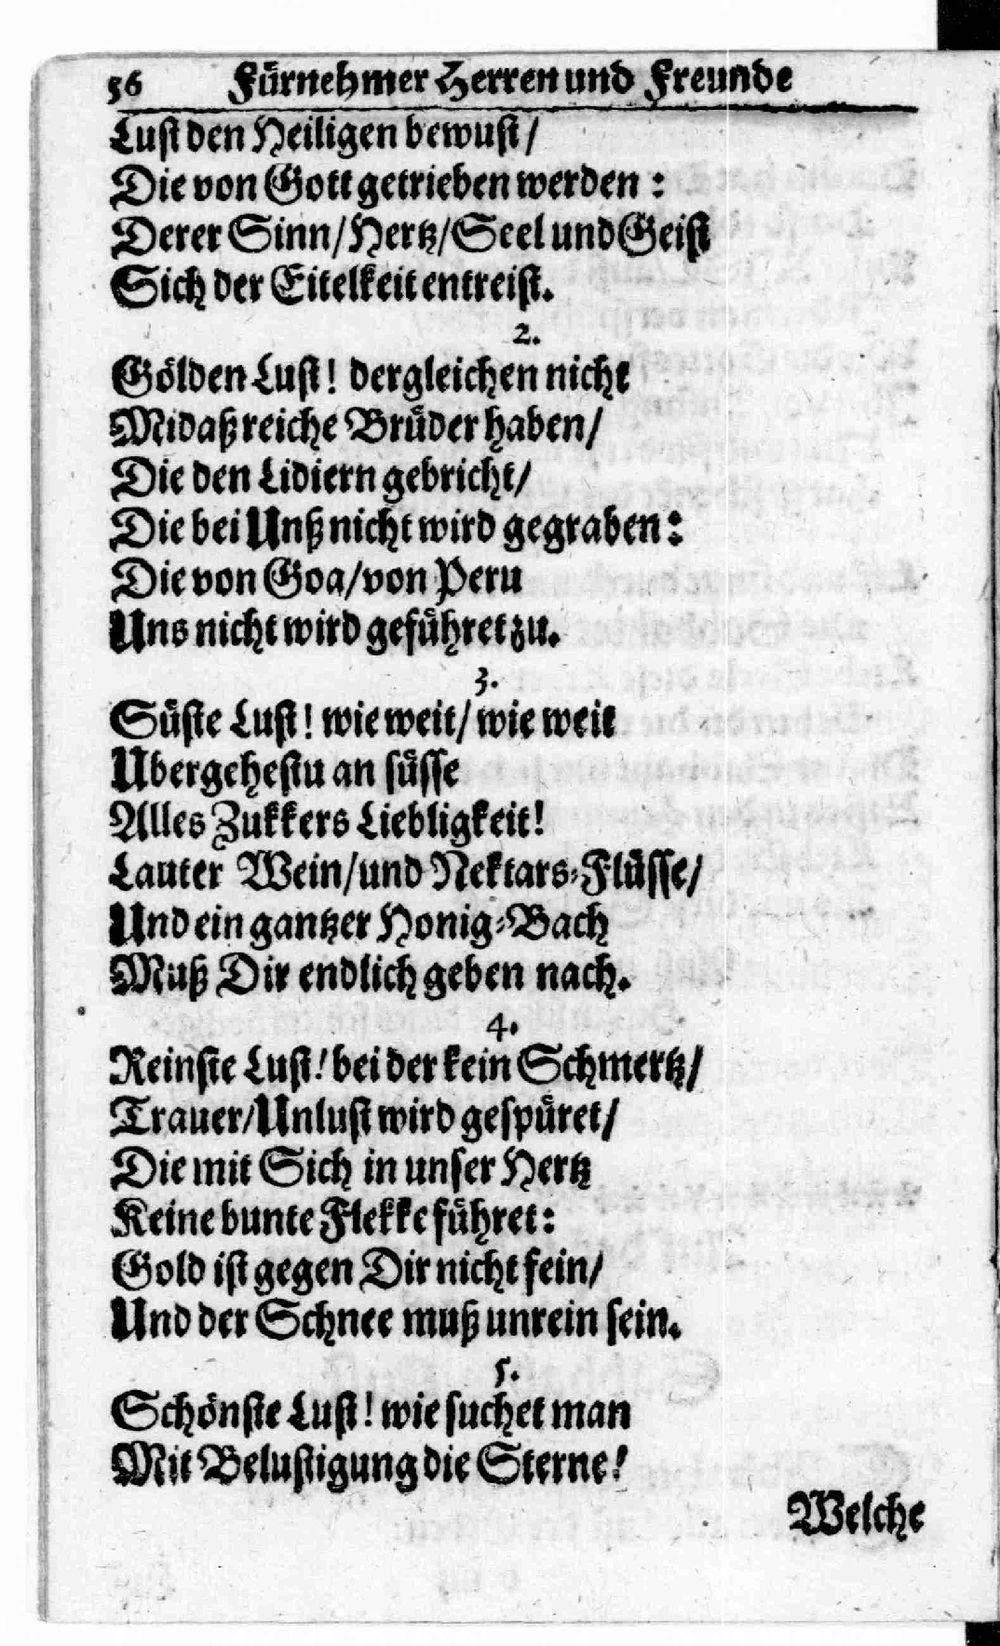 56 Fürnehmer Herren und Freunde
Lust den Heiligen bewust/
Die von Gott getrieben werden:
Derer Sinn/Hertz/Seel und Geist
Sich der Eitelkeit entreist.
2.
Gölden Lust! dergleichen nicht
Midaß reiche Brüder haben/
Die den Lidiern gebricht/
Die bei Unß nicht wird gegraben:
Die von Goa/von Peru
Uns nicht wird geführet zu.
3.
Süste Lust! wie weit/wie weit
Ubergehestu an süsse
Alles Zukkers Liebligkeit!
Lauter Wein/und Nektars-Flüsse/
Und ein gantzer Honig-Bach
Muß Dir endlich geben nach.
4.
Reinste Lust! bei der kein Schmertz/
Trauer/Unlust wird gespüret/
Die mit Sich in unser Hertz
Keine bunte Flekke führet:
Gold ist gegen Dir nicht fein/
Und der Schnee muß unrein sein.
5.
Schönste Lust! wie suchet man
Mit Belustigung die Sterne!
Welche